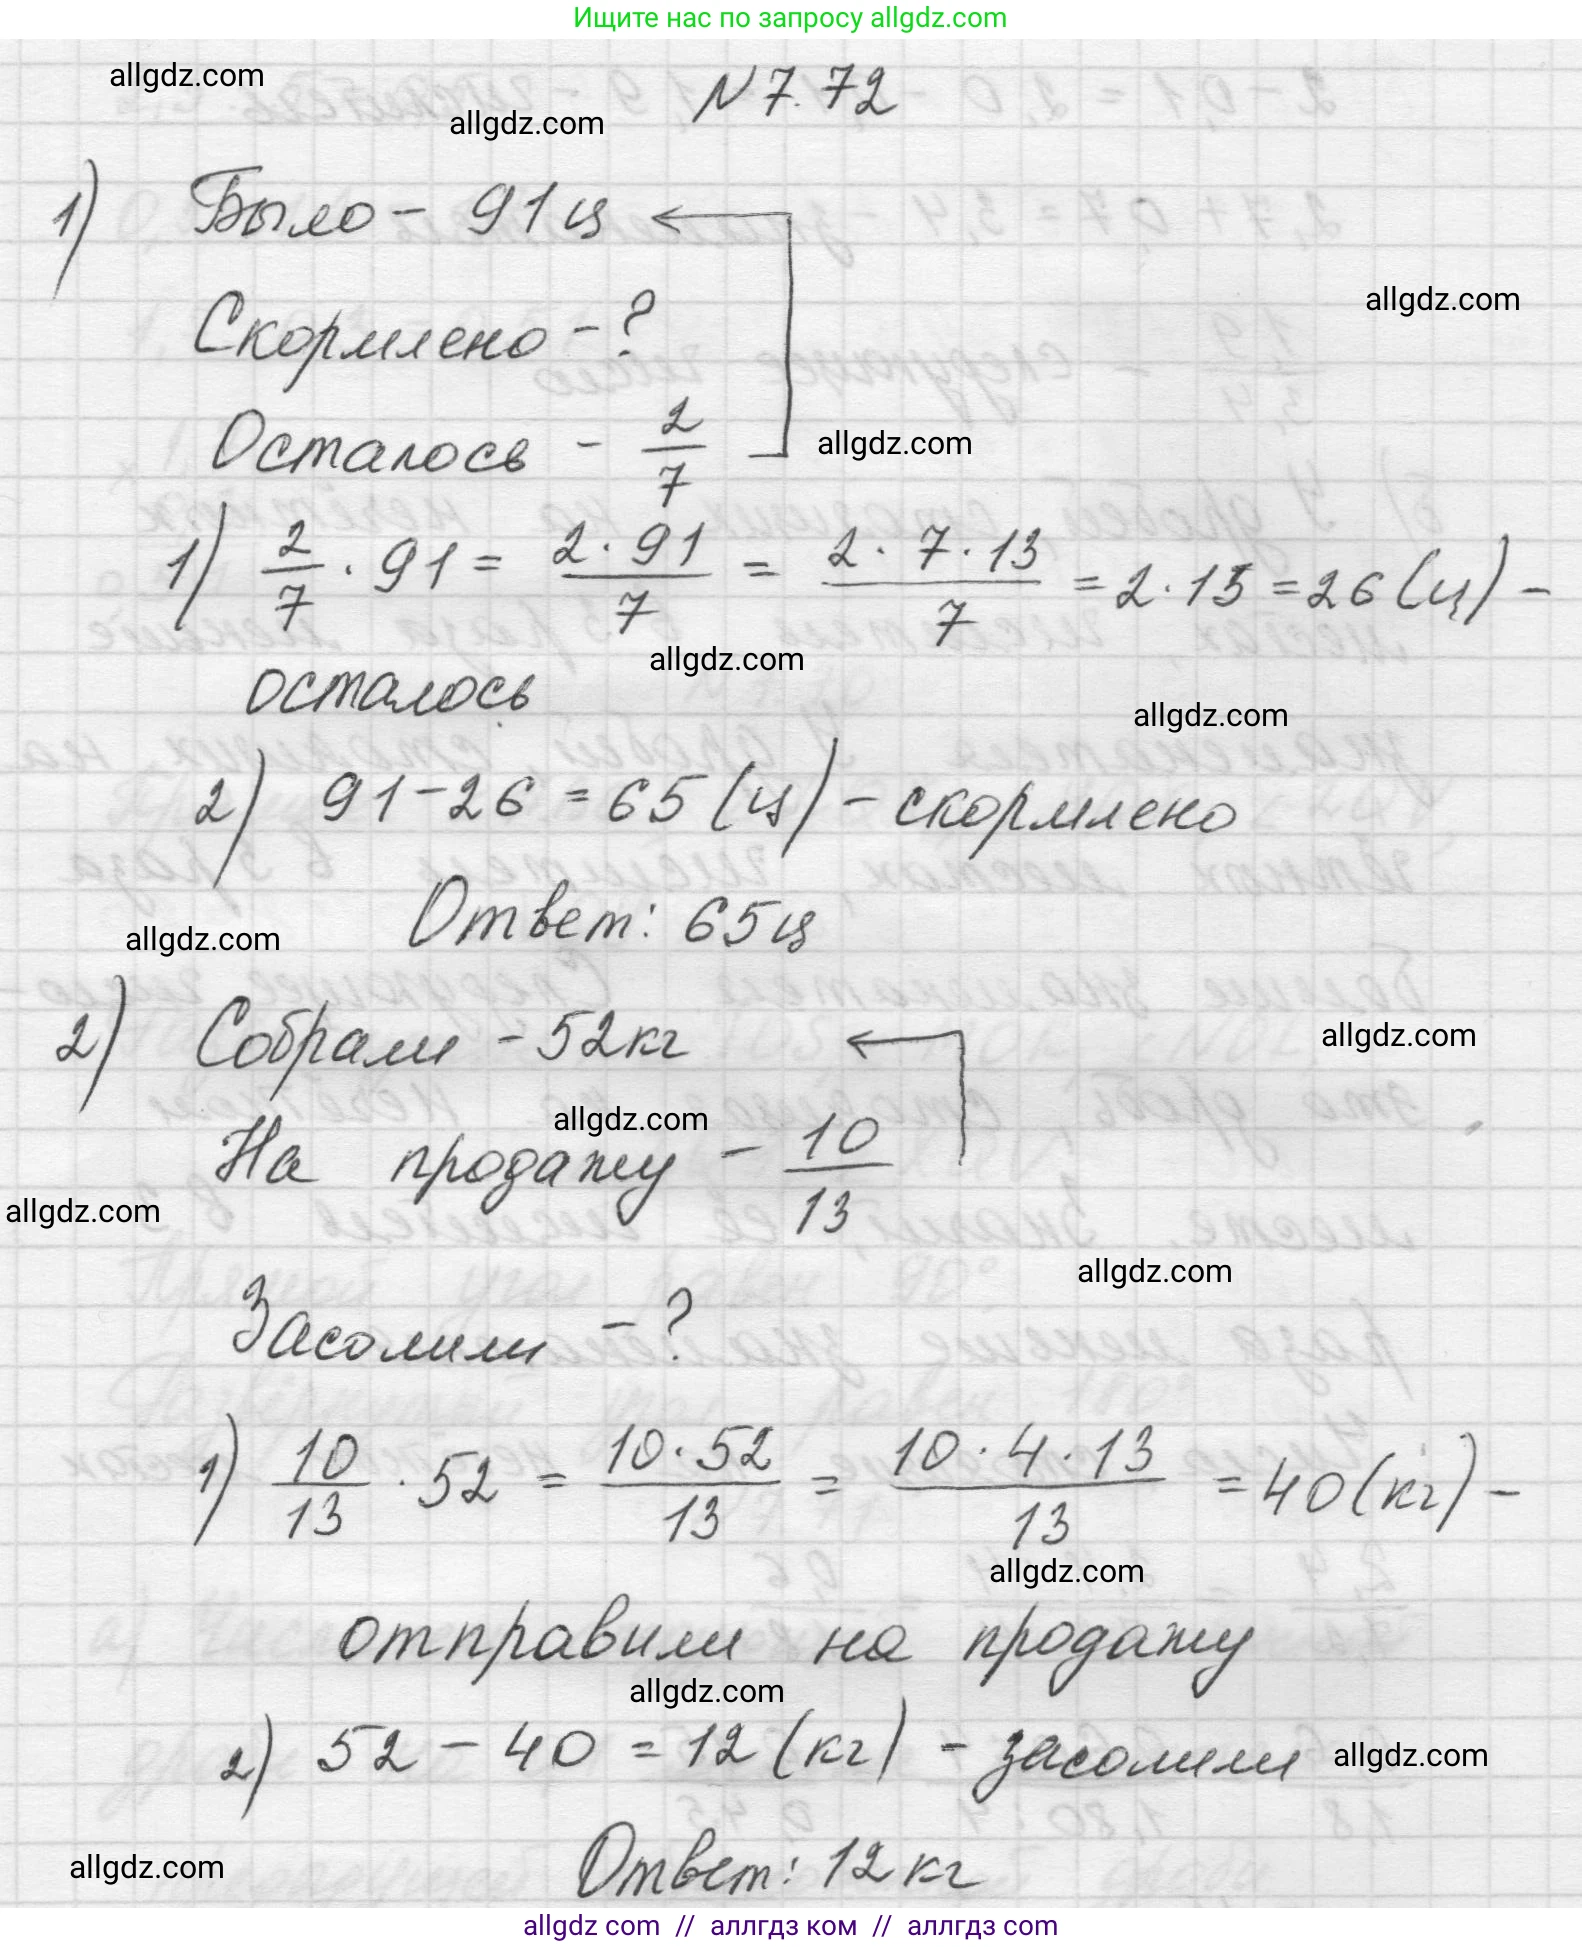 Ищите нас по запросу allgdz.com
allgdz.com
N 7.72
allgdz.com
1) Было - 91 ц
Скормлено - ?
allgdz.com
Осталось - 2/7
allgdz.com
1) 2/7 · 91 = 2 · 91/7 = 2 · 7 · 13/7 = 2 · 13 = 26 (ц) -
allgdz.com
осталось
allgdz.com
2) 91 - 26 = 65 (ц) - скормлено
Ответ: 65 ц
allgdz.com
2) Собрали - 52 кг
allgdz.com
allgdz.com
На продажу - 10/13
allgdz.com
allgdz.com
Засолили - ?
1) 10/13 · 52 = 10 · 52/13 = 10 · 4 · 13/13 = 40 (кг) -
allgdz.com
отправили на продажу
allgdz.com
2) 52 - 40 = 12 (кг) - засолили
allgdz.com
Ответ: 12 кг
allgdz.com
allgdz com // аллгдз ком // аллгдз com